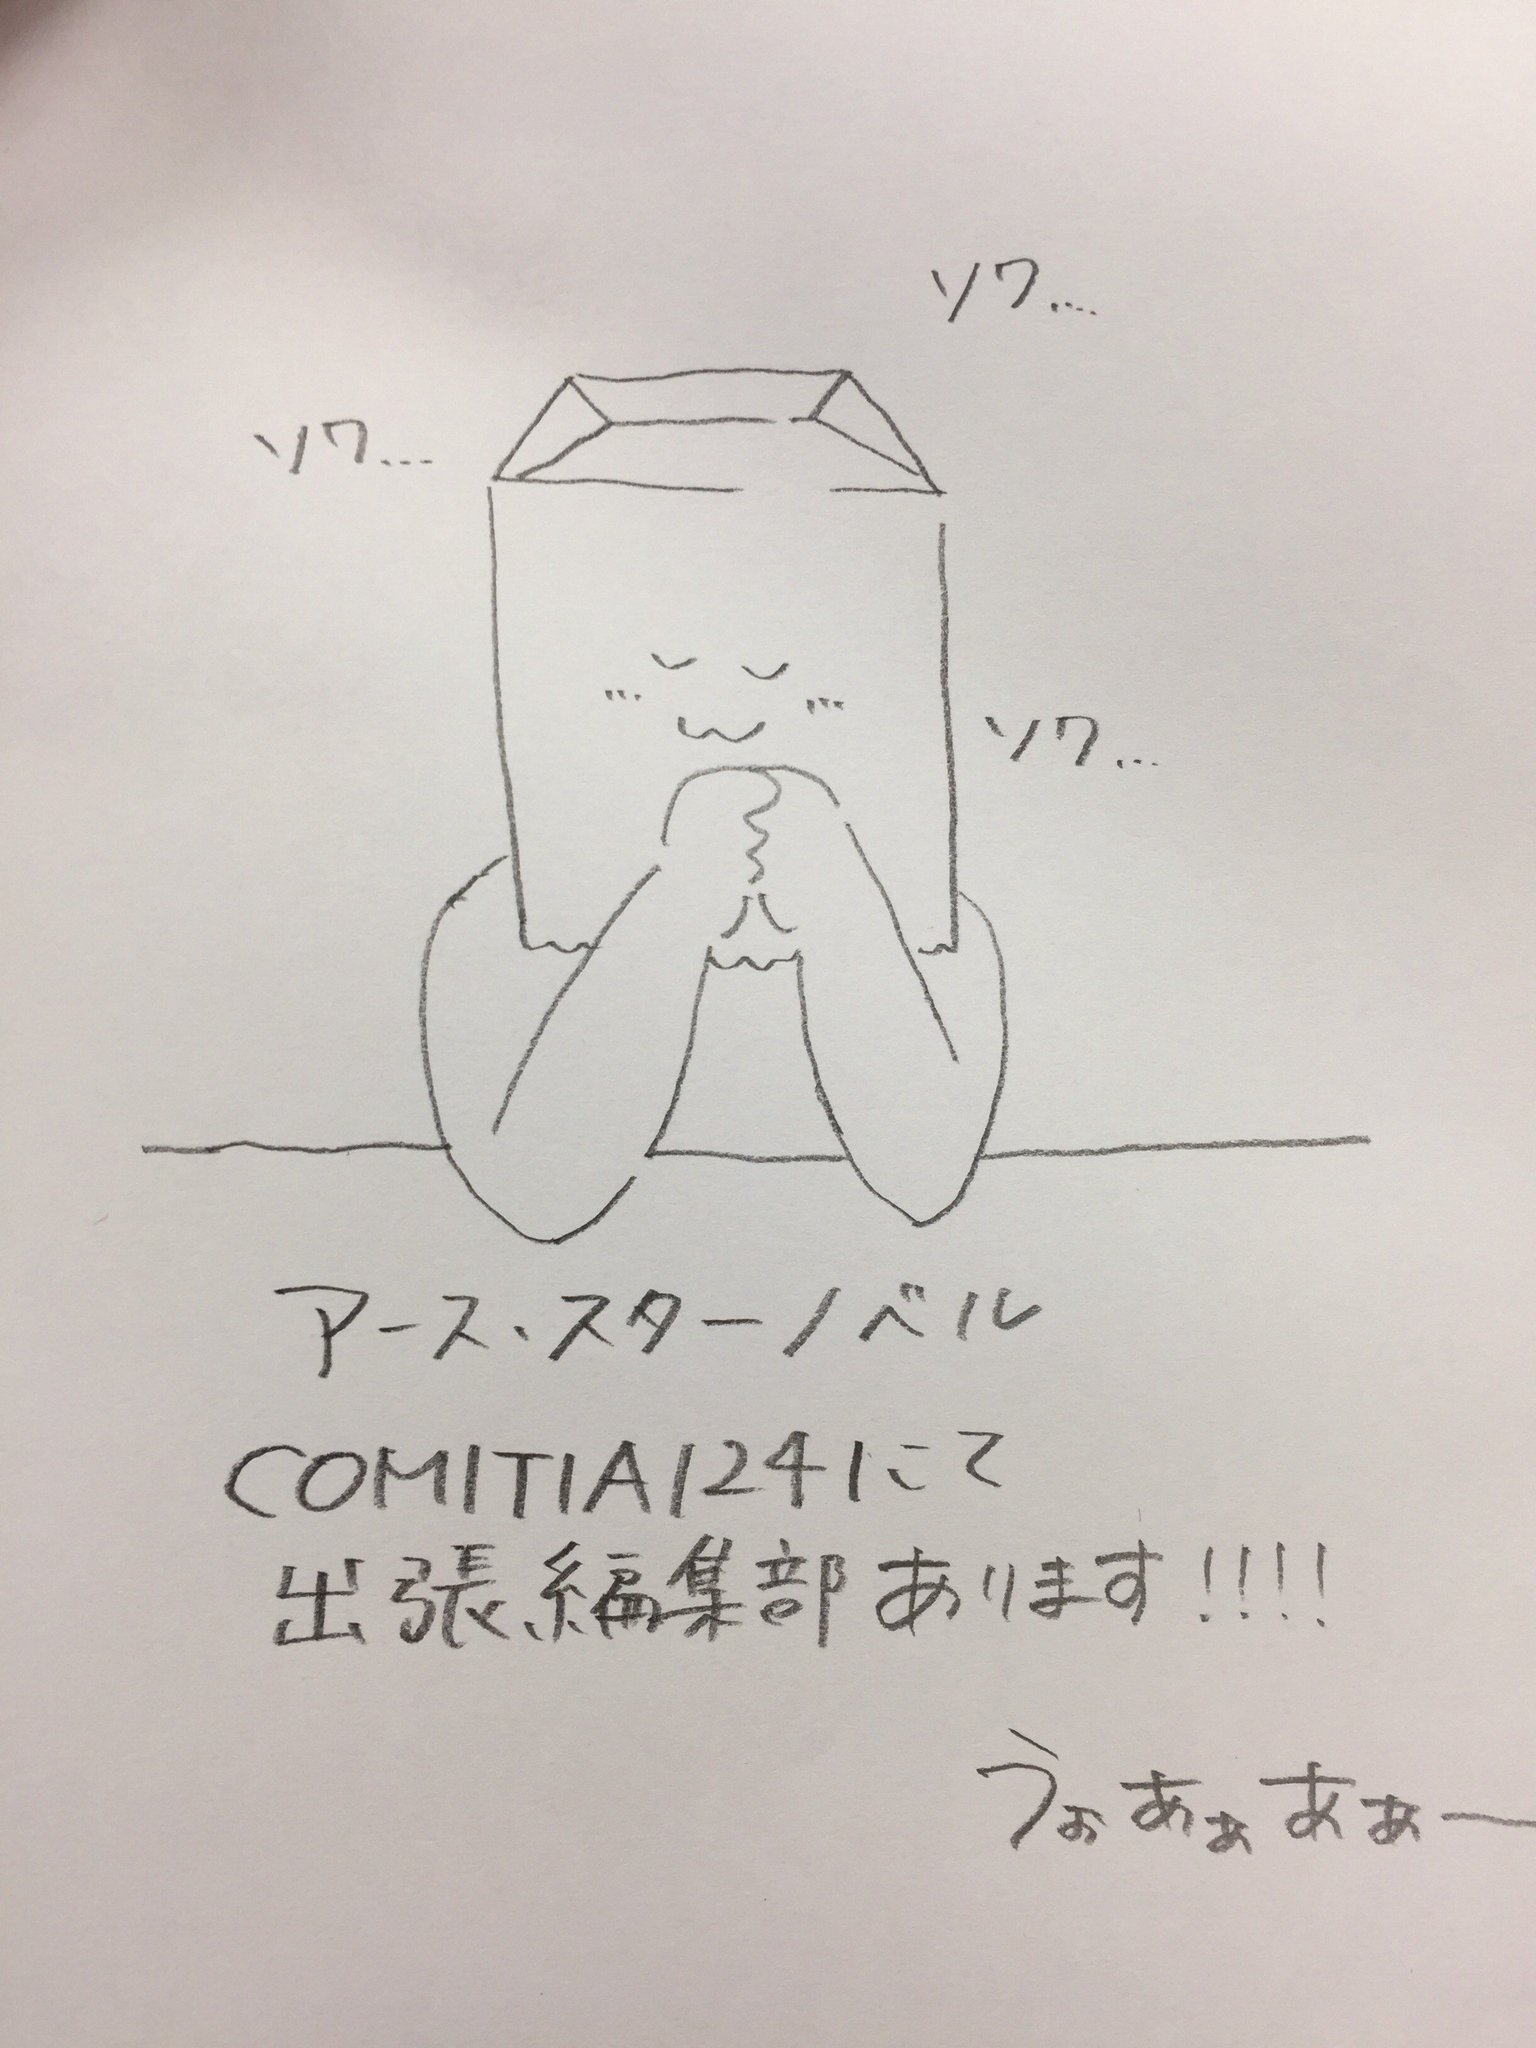 ソワ…
ソワ…
ソワ…
アース・スターノベル
COMITIA124にて
出張編集部あります!!!!
うぉあぁあぁー